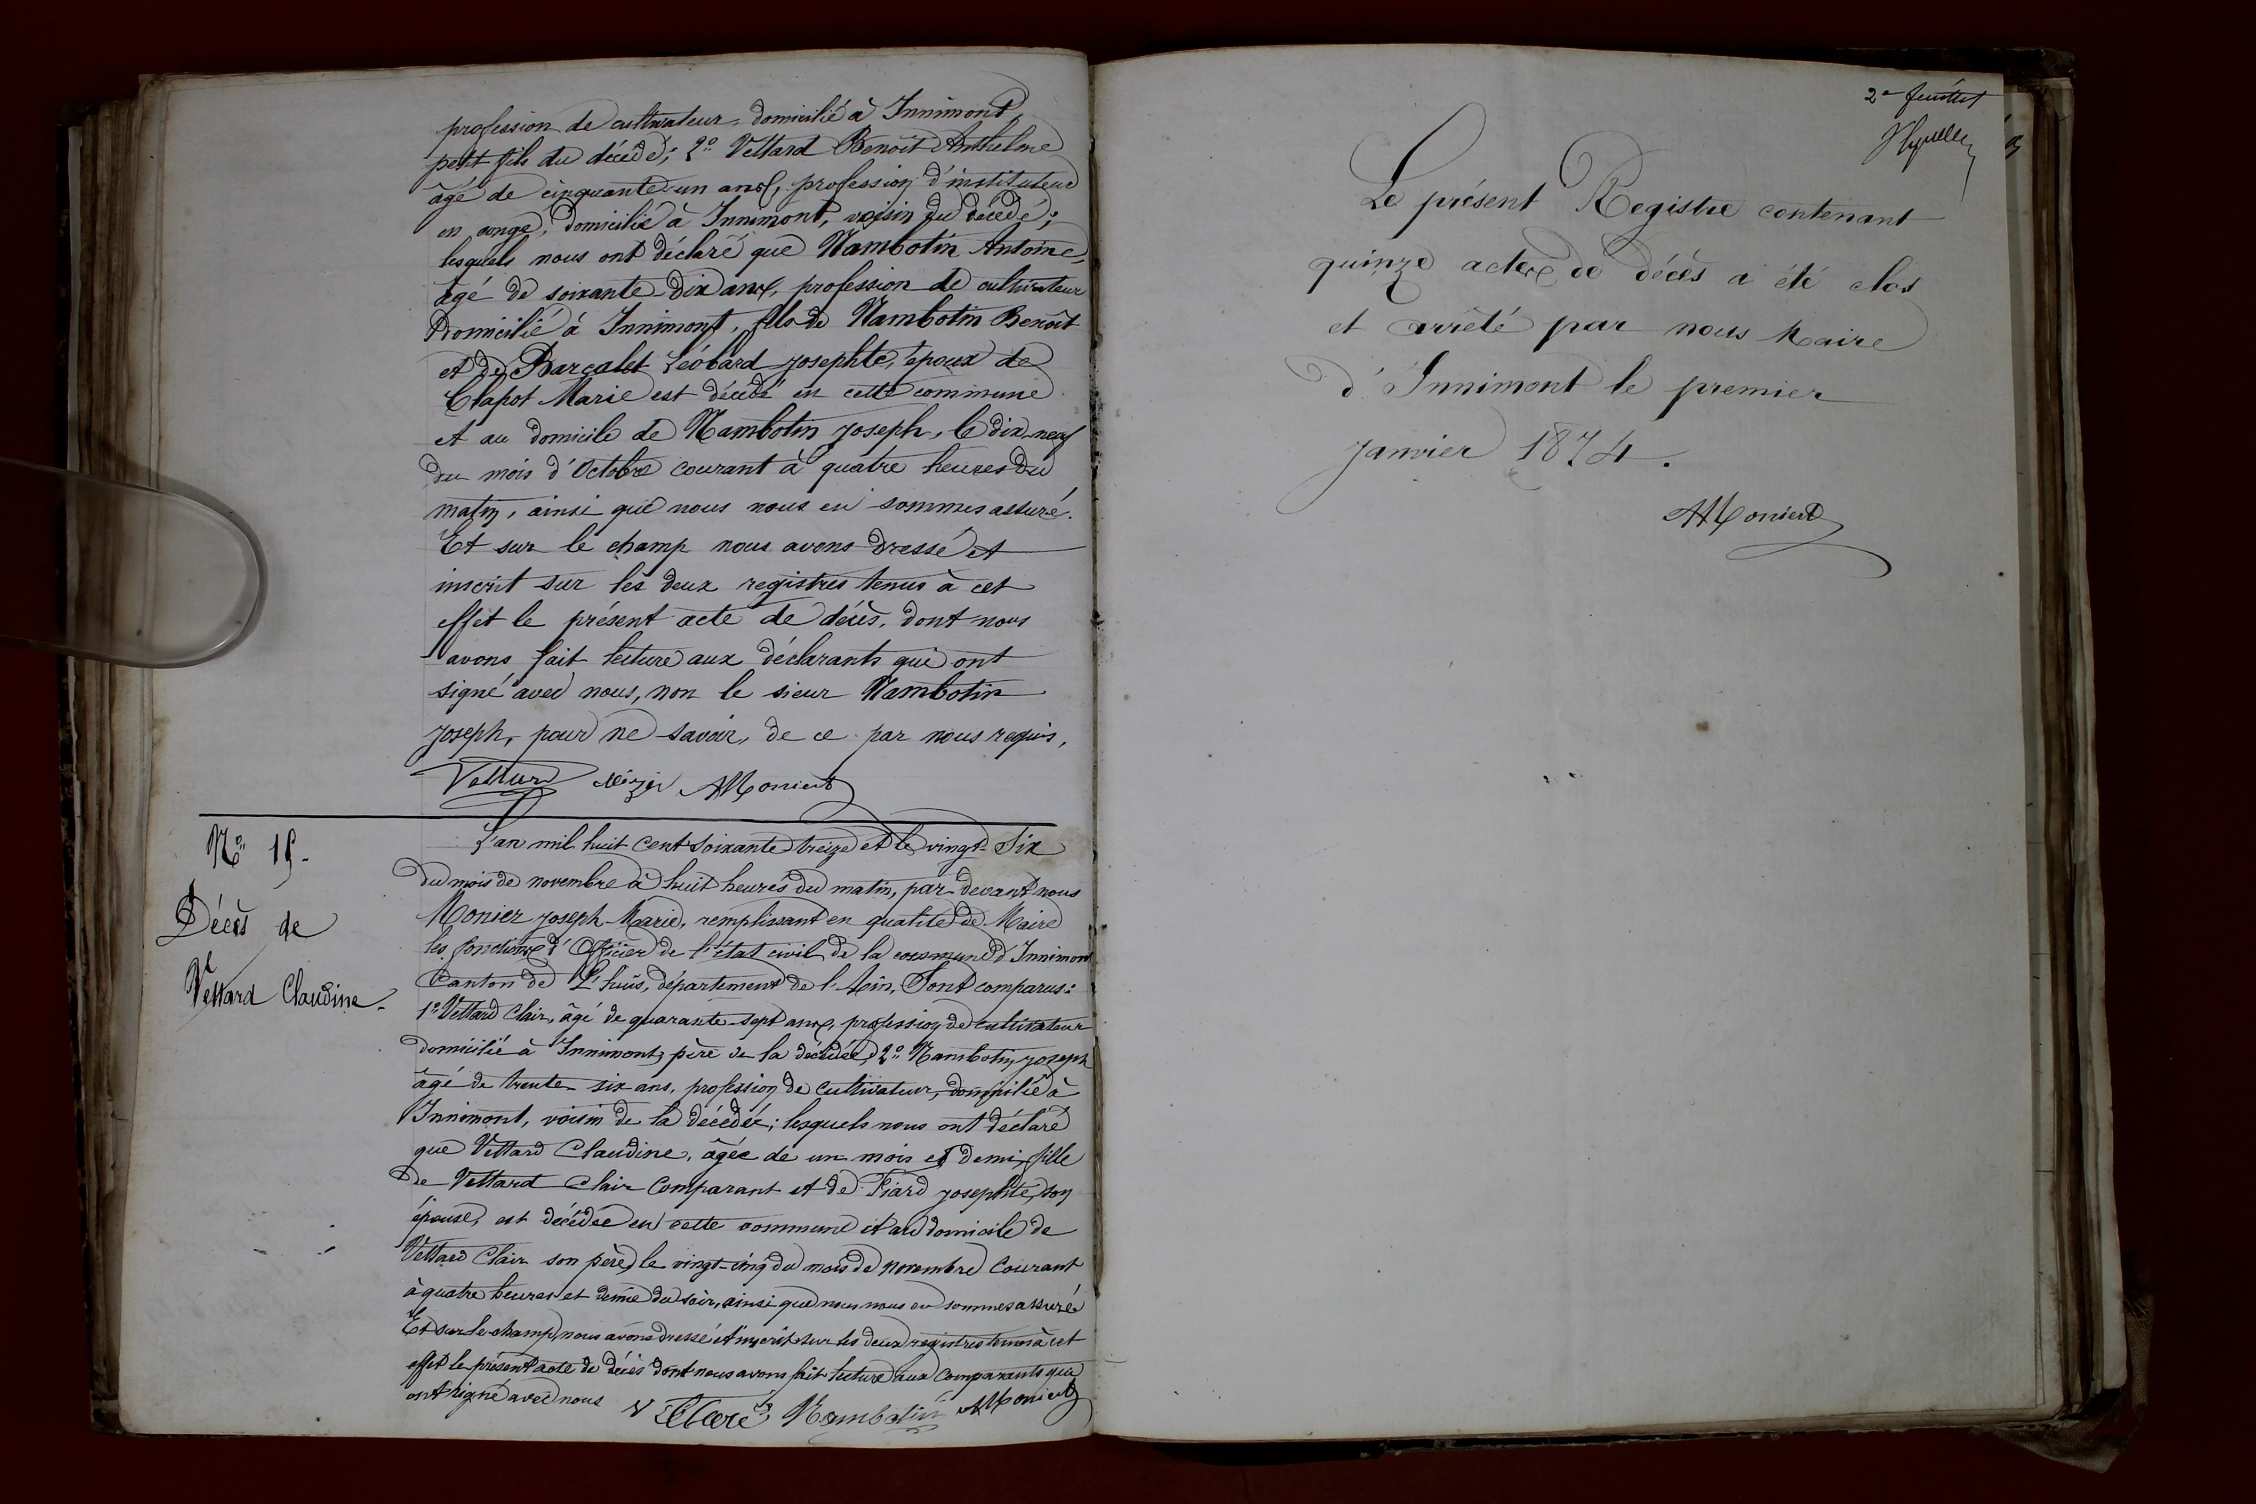 profession de cultivateur, domicilié à Innimont,
petit fils du décédé; 2º Vettard Benoît Anthelme
âgé de cinquante-un ans, profession d'instituteur
en congé, domicilié à Innimont, voisin du décédé;
lesquels nous ont déclaré que Nambotin Antoine,
âgé de soixante-dix ans, profession de cultivateur
domicilié à Innimont, fils de Nambotin Benoît
et de Barcalet Léobard Josephte, époux de
Clapot Marie est décédé en cette commune
et au domicile de Nambotin Joseph, le dix-neuf
du mois d'Octobre courant à quatre heures du
matin, ainsi que nous nous en sommes assuré.
Et sur le champ nous avons dressé et
inscrit sur les deux registres tenus à cet
effet le présent acte de décès, dont nous
avons fait lecture aux déclarants qui ont
signé avec nous, non le sieur Nambotin
Joseph, pour ne savoir, de ce par nous requis,
Vettard Monier
Nº 15.
Décès de
Vettard Claudine.
L'an mil huit cent soixante treize et le vingt-six
du mois de novembre à huit heures du matin, par-devant nous
Monier Joseph-Marie, remplissant en qualité de Maire
les fonctions d'Officier de l'état civil de la commune d'Innimont
Canton de L'huis, département de l'Ain, Sont comparus:
1º Vettard Clair, âgé de quarante-sept ans, profession de cultivateur
domicilié à Innimont, père de la décédée, 2º Nambotin Joseph
âgé de trente-six ans, profession de cultivateur, domicilié à
Innimont, voisin de la décédée; lesquels nous ont déclaré
que Vettard Claudine, âgée de un mois et demi, fille
de Vettard Clair Comparant et de Fiard Josephte, son
épouse, est décédée en cette commune et au domicile de
Vettard Clair son père, le vingt-cinq du mois de novembre Courant
à quatre heures et demie du soir, ainsi que nous nous en sommes assuré.
Et sur le champ, nous avons dressé et inscrit sur les deux registres tenus à cet
effet le présent acte de décès dont nous avons fait lecture aux Comparants qui
ont signé avec nous Nambotin Monier
2e feuillet
Le présent Registre contenant
quinze actes de décès a été clos
et arrêté par nous Maire
d'Innimont le premier
Janvier 1874.
Monier